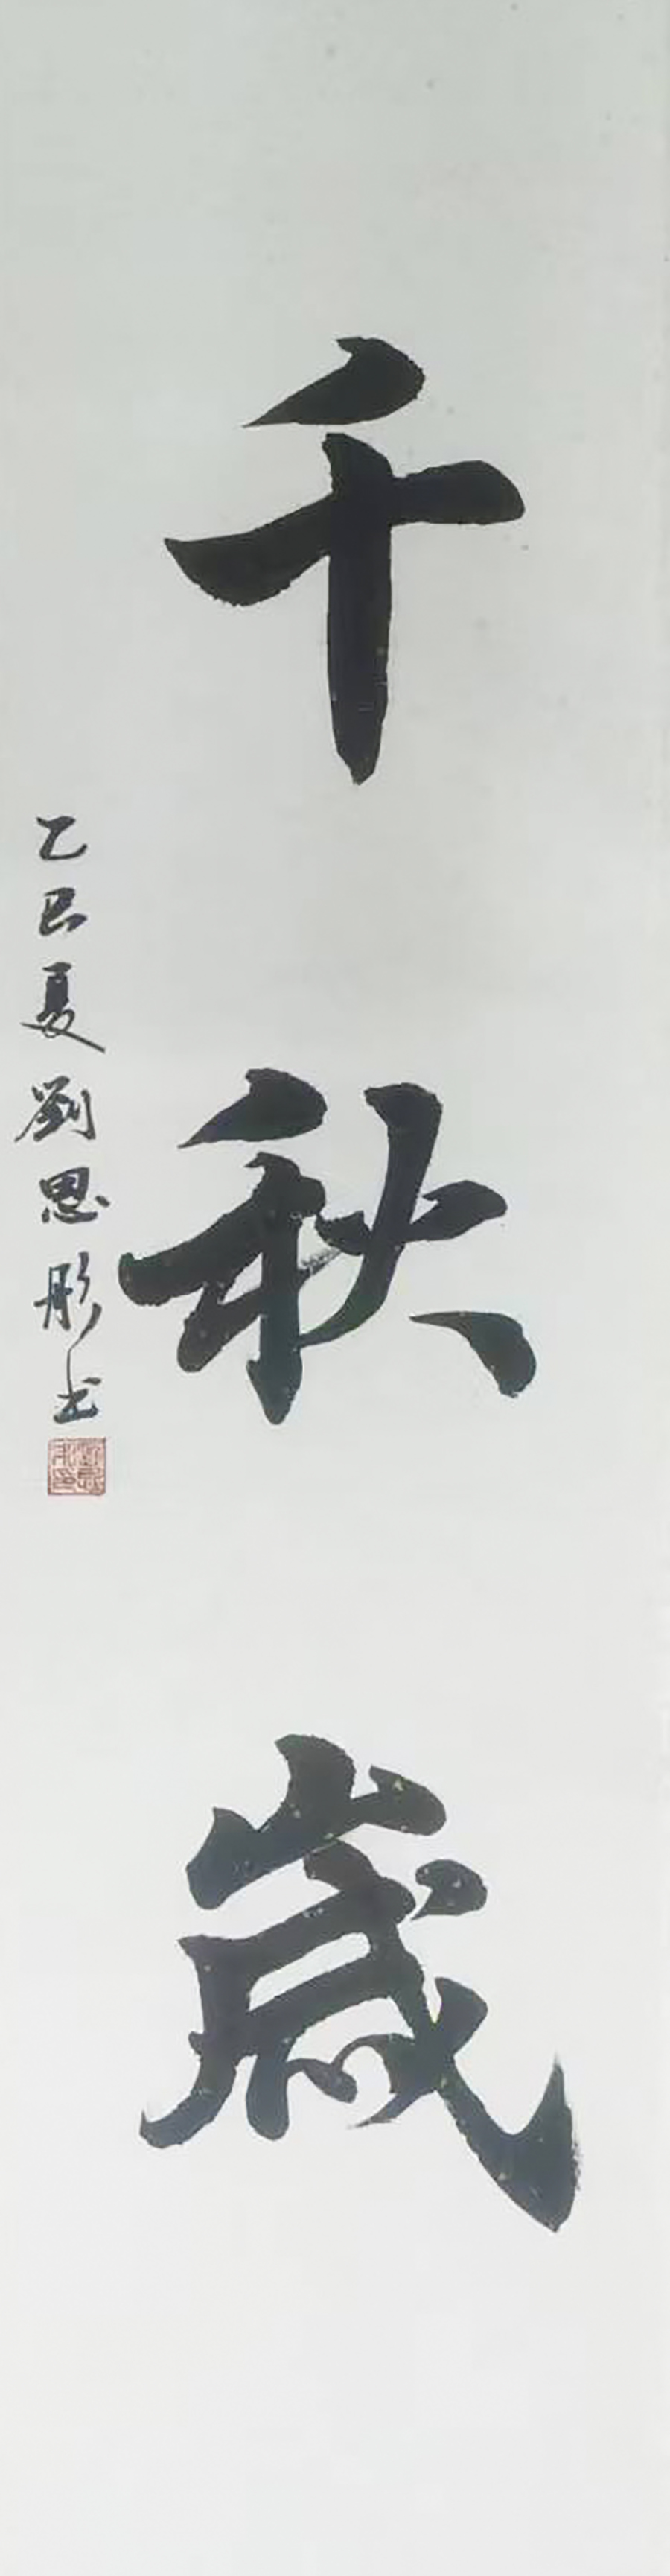 千秋歲
乙巳夏劉恩彤书